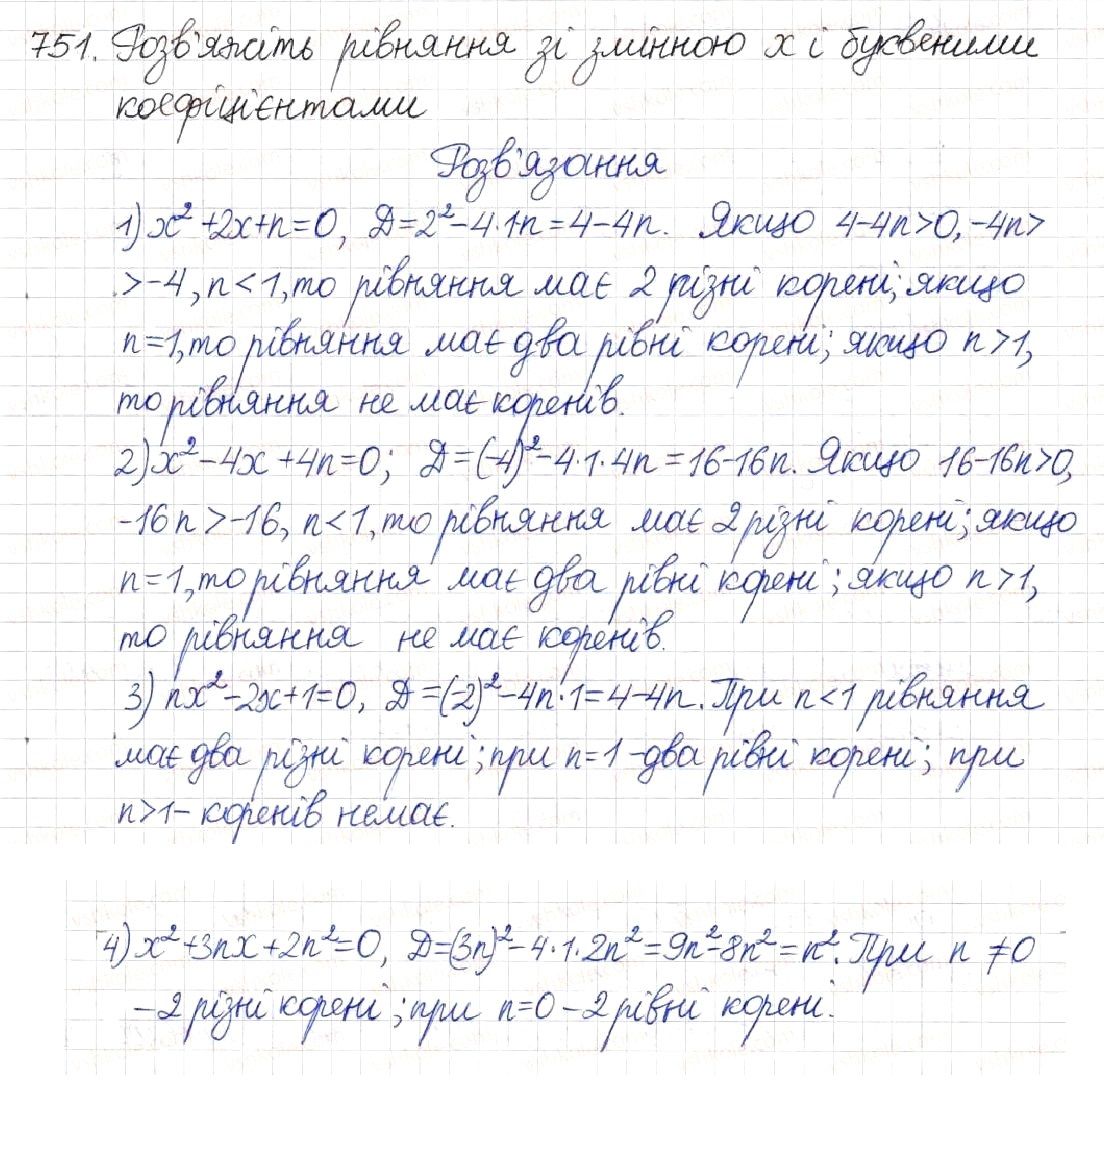 751. Розв'яжіть рівняння зі змінною x і буквеними
коефіцієнтами
Розв'язання
1) x² + 2x + n = 0, Д = 2² - 4·1·n = 4 - 4n. Якщо 4 - 4n > 0, -4n >
> -4, n < 1, то рівняння має 2 різні корені; якщо
n = 1, то рівняння має два рівні корені; якщо n > 1,
то рівняння не має коренів.
2) x² - 4x + 4n = 0; Д = (-4)² - 4·1·4n = 16 - 16n. Якщо 16 - 16n > 0,
-16n > -16, n < 1, то рівняння має 2 різні корені; якщо
n = 1, то рівняння має два рівні корені; якщо n > 1,
то рівняння не має коренів.
3) nx² - 2x + 1 = 0, Д = (-2)² - 4n·1 = 4 - 4n. При n < 1 рівняння
має два різні корені; при n = 1 - два рівні корені; при
n > 1 - коренів немає.
4) x² + 3nx + 2n² = 0, Д = (3n)² - 4·1·2n² = 9n² - 8n² = n². При n ≠ 0
- 2 різні корені; при n = 0 - 2 рівні корені.